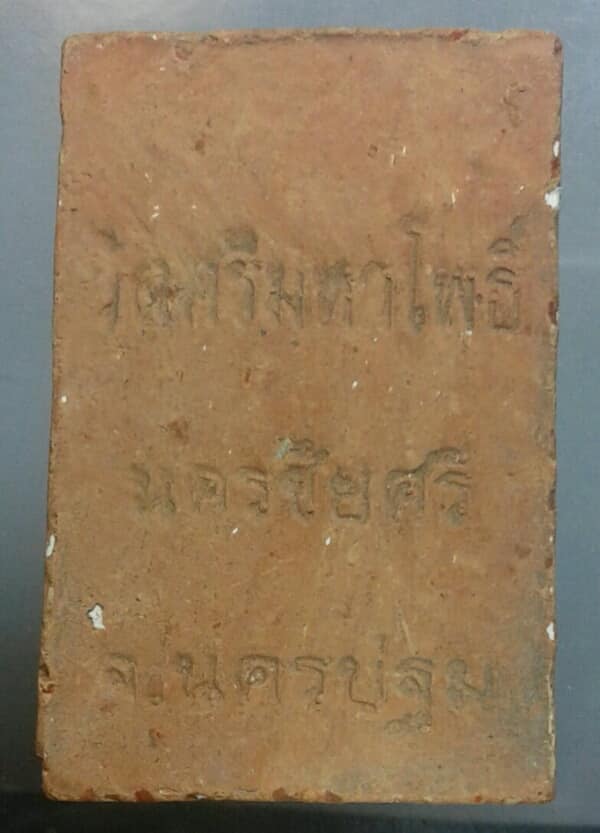 วัดศรีมหาโพธิ์
นครชัยศรี
จ.นครปฐม